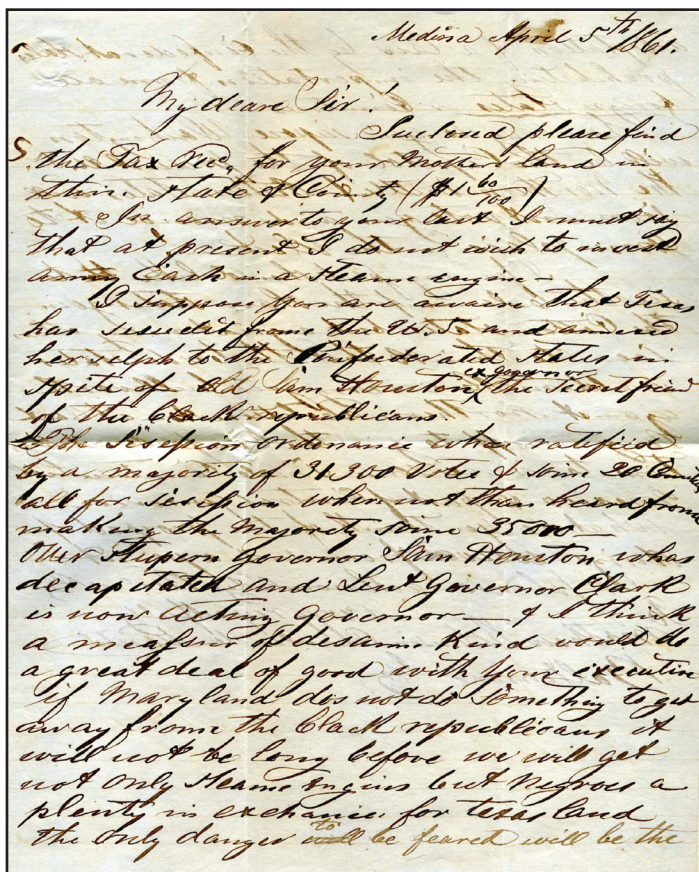 Medina April 5th 1861.
My deare Sir!
Inclosed please find
the Tax Rec. for your Mothers land in
this State & County ($1 60/100)
In answer to your last I must say
that at present I do not wish to invest
anny Cash in a Steame engine
I suppose you are awaire that Texas
has seucedit frome the U.S. and annexed
herselph to the Confederated States in
spite of all Sam Houston ex governor the secret friend
of the black republicans.
The Sesession ordonance whas ratified
by a majority of 31.300 Votes & some 20 Counties
all for sesession wher not then heard frome
making the Majority some 35000 —
Our governor Sam Houston whas
decapitated and Leut Governor Clark
is now acting governor — & I think
a measur of desame Kind would do
a great deal of good with your executive
if Maryland dos not do something to get
away frome the black republicans it
will not be long before we will get
not only Steame Engins but Negroes a
plenty in exchance for texas land
the only danger to be feared will be the